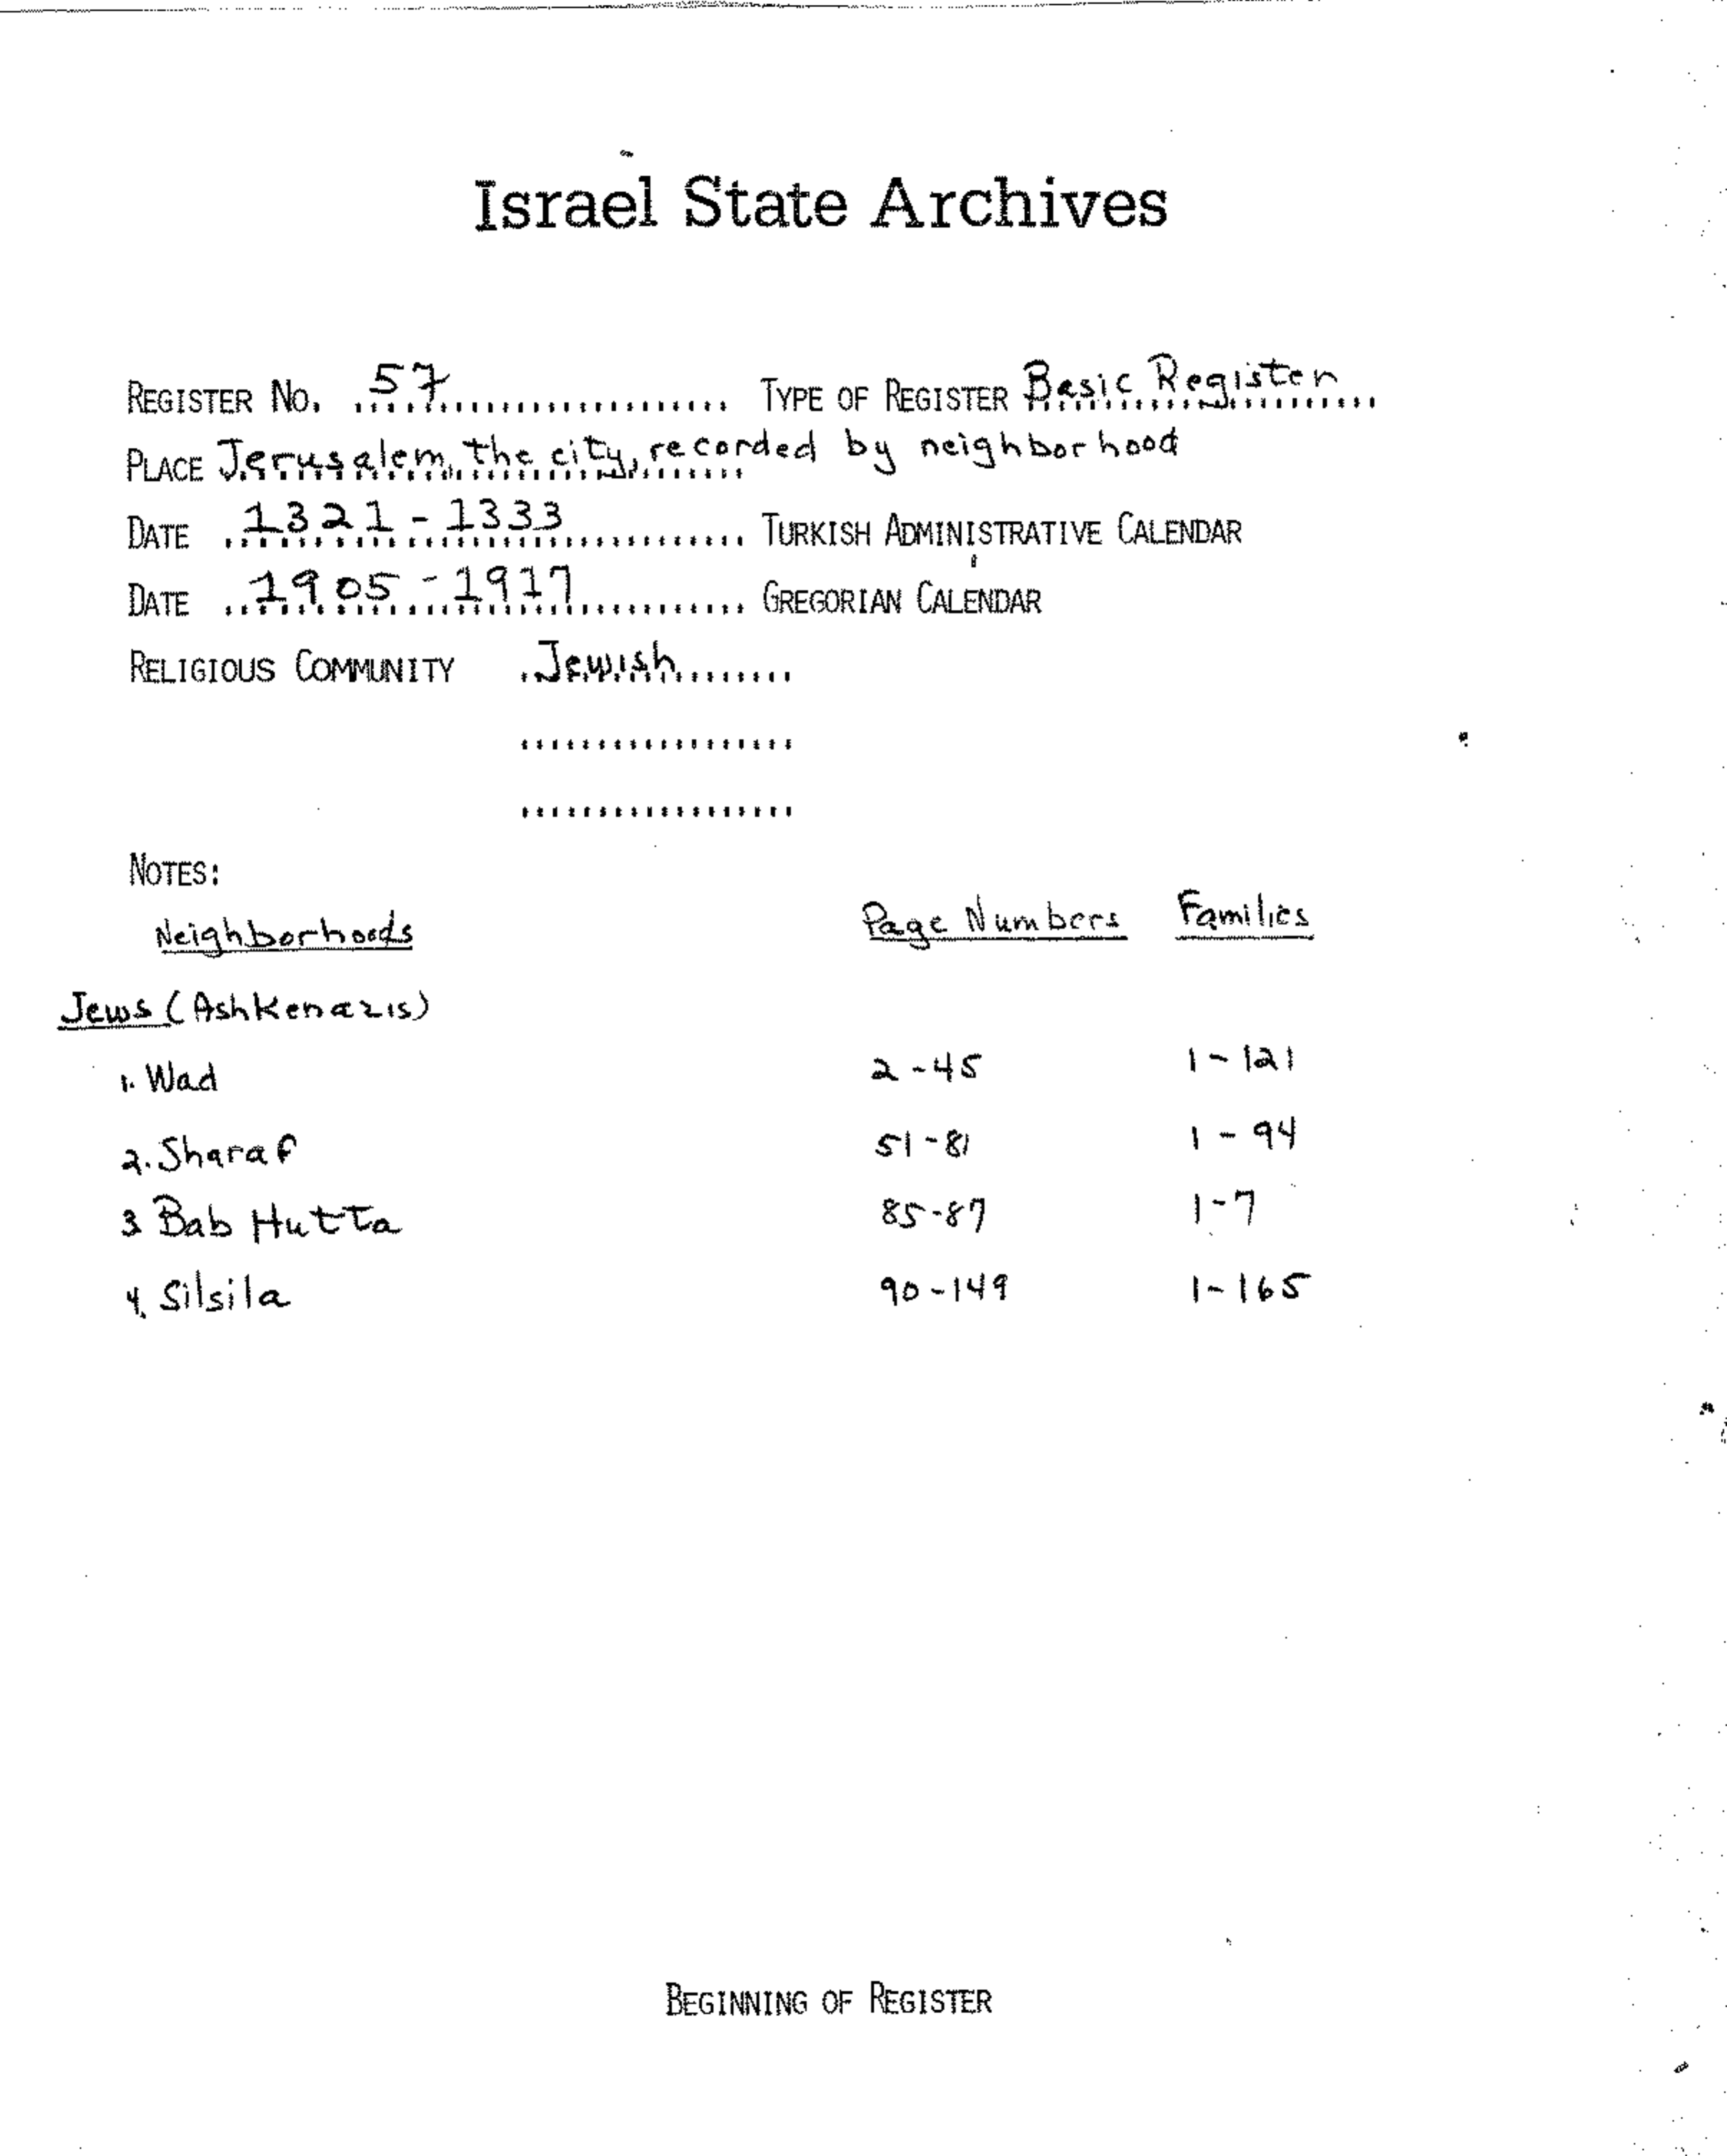 Israel State Archives
REGISTER NO. 57 TYPE OF REGISTER Basic Register
PLACE Jerusalem, the city, recorded by neighborhood
DATE 1321 - 1333 TURKISH ADMINISTRATIVE CALENDAR
DATE 1905 - 1917 GREGORIAN CALENDAR
RELIGIOUS COMMUNITY Jewish
NOTES:
Neighborhoods Page Numbers Families
Jews (Ashkenazis)
1. Wad 2-45 1-121
2. Sharaf 51-81 1-94
3 Bab Hutta 85-87 1-7
4. Silsila 90-149 1-165
BEGINNING OF REGISTER